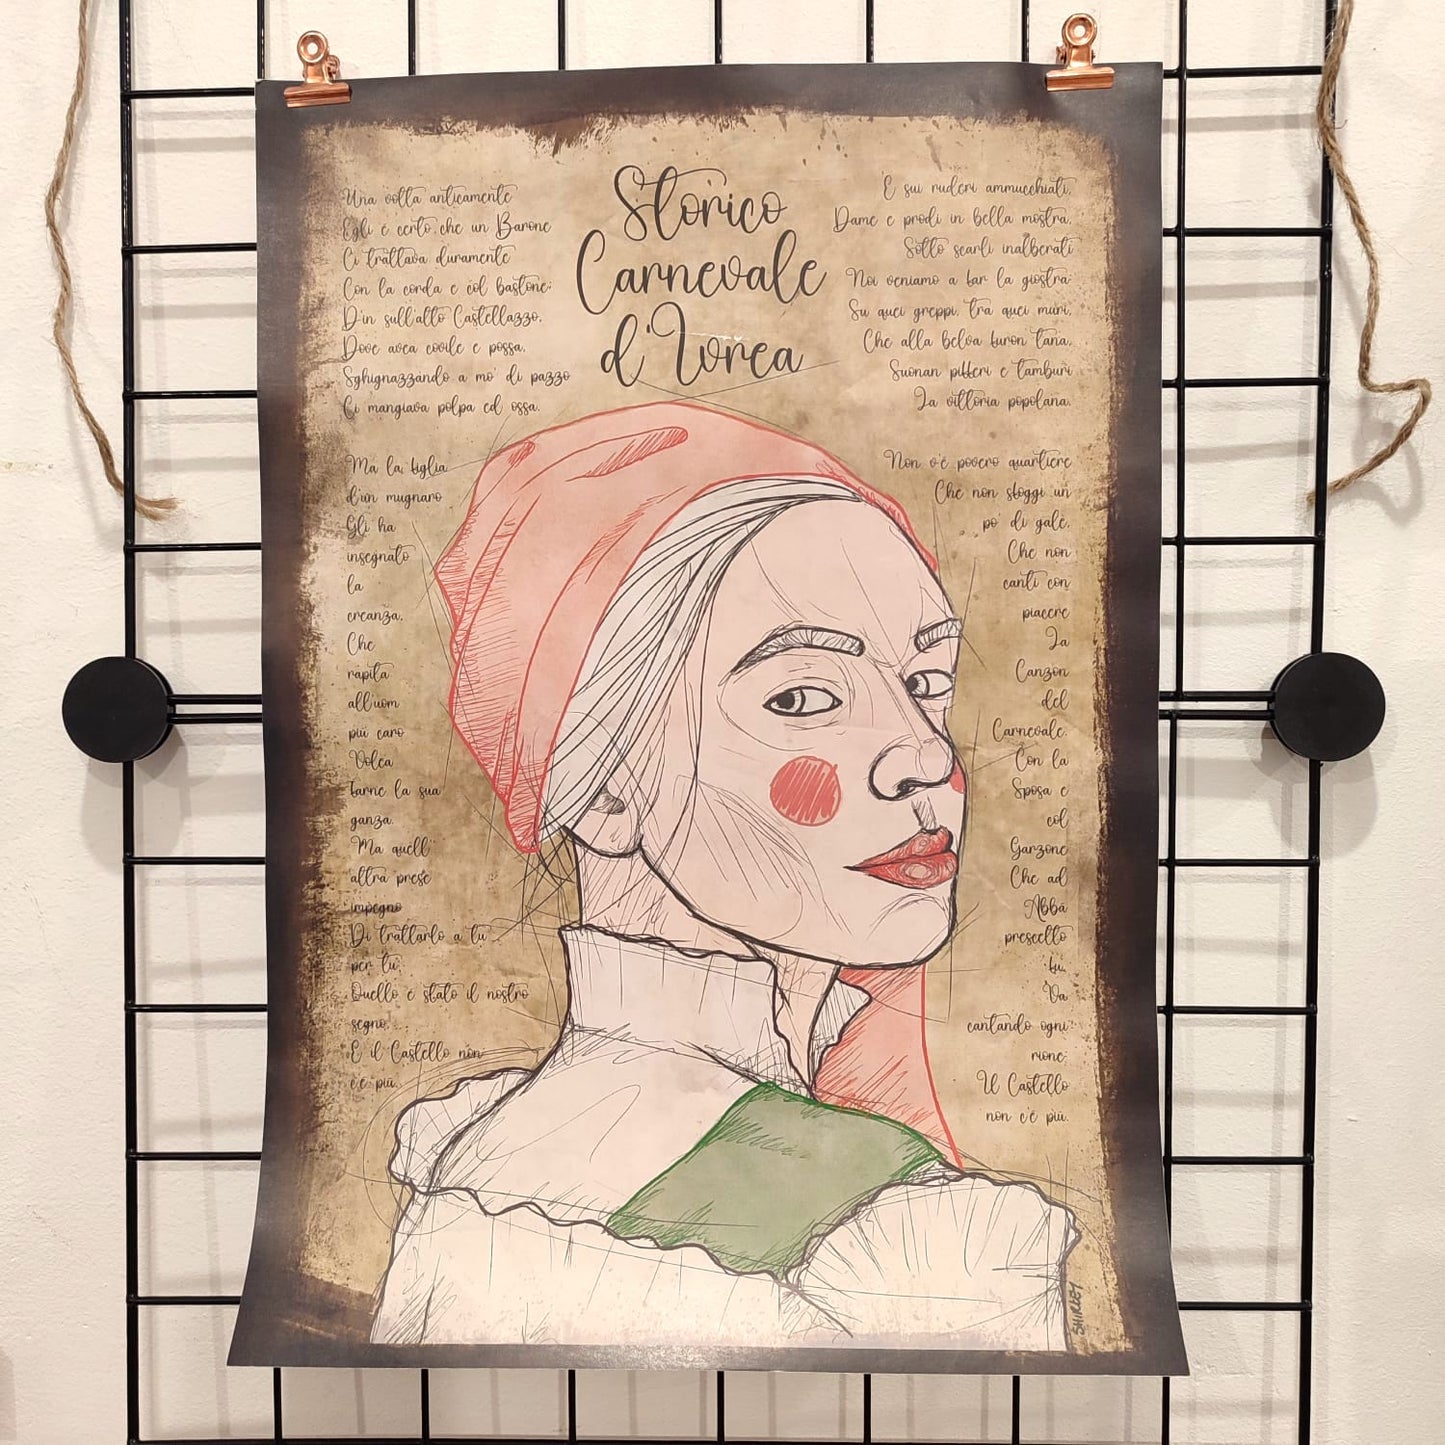 Storico
Carnevale
d'Ivrea
Una volta anticamente
Egli è certo che un Barone
Ci trattava duramente
Con la corda e col bastone;
D'in sull'alto Castellazzo,
Dove avea covile e possa,
Sghignazzando a mo' di pazzo
Ci mangiava polpa ed ossa.
Ma la figlia
d'un mugnaro
Gli ha
insegnato
la
creanza,
Che
rapita
all'uom
più caro
Volea
farne la sua
ganza.
Ma quell'
altra prese
impegno
Di trattarlo a tu
per tu;
Quello è stato il nostro
segno,
E il Castello non
c'è più.
E sui ruderi ammucchiati,
Dame e prodi in bella mostra,
Sotto scarli inalberati
Noi veniamo a far la giostra:
Su quei greppi, tra quei muri,
Che alla belva furon tana,
Suonan pifferi e tamburi
La vittoria popolana.
Non v'è povero quartiere
Che non sfoggi un
po' di gale,
Che non
canti con
piacere
La
Canzon
del
Carnevale.
Con la
Sposa e
col
Garzone
Che ad
Abbà
prescelto
fu,
Va
cantando ogni
rione:
Il Castello
non c'è più.
SHIRLEY